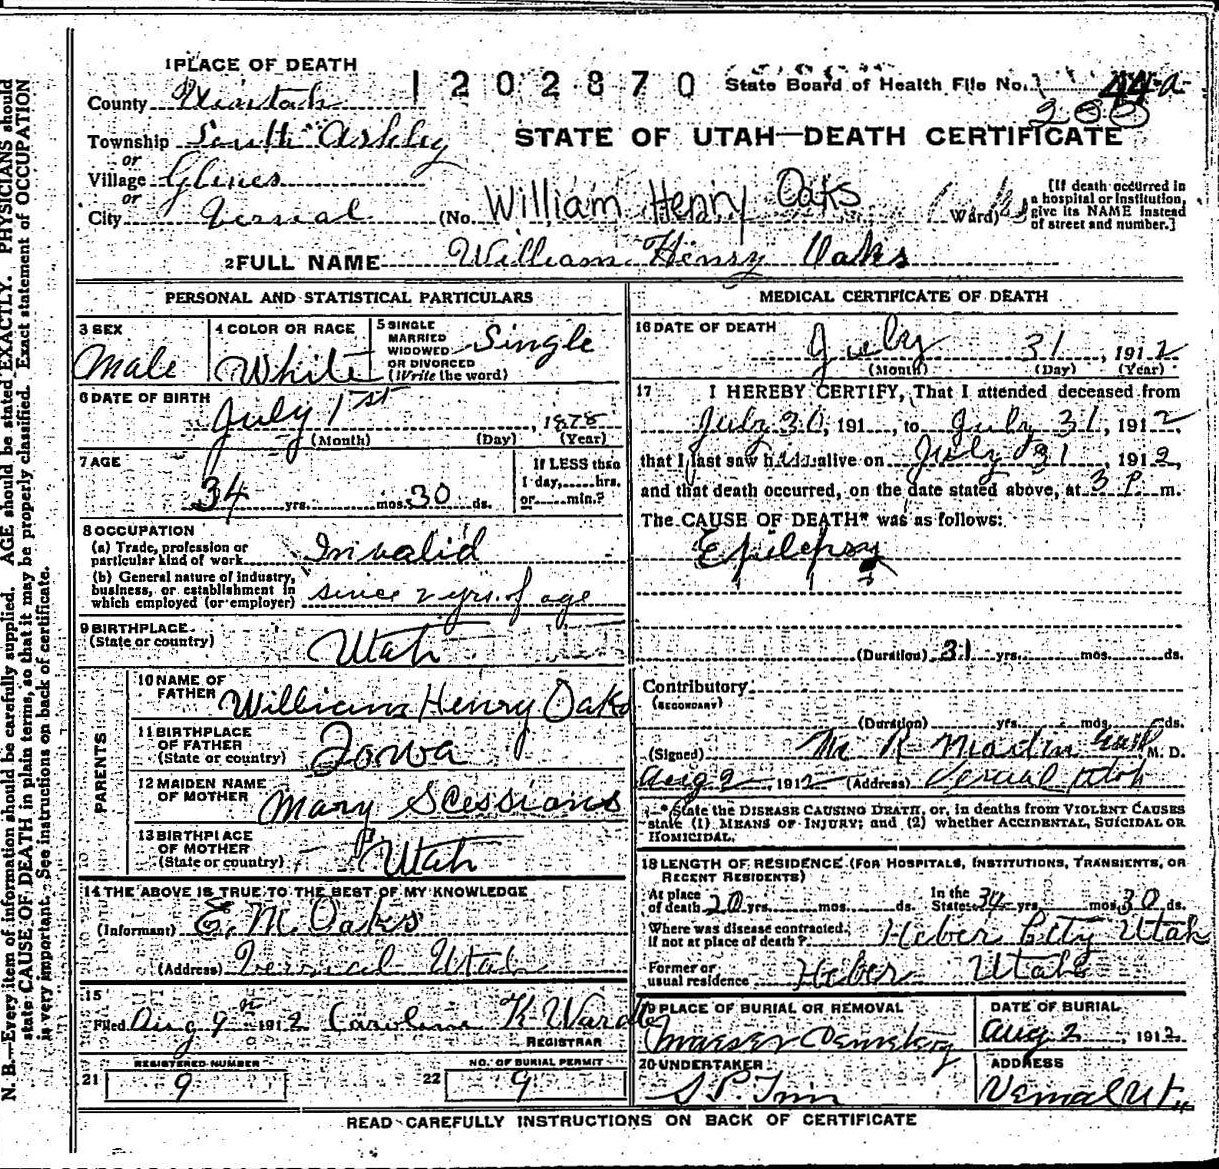 1 PLACE OF DEATH
1202870
State Board of Health File No. 44-a
County Uintah
288
Township South Ashley
STATE OF UTAH—DEATH CERTIFICATE
or
Village Glines
or
City Vernal (No. William Henry Oaks Ward)
[If death occurred in a hospital or institution, give its NAME instead of street and number.]
2 FULL NAME William Henry Oaks
PERSONAL AND STATISTICAL PARTICULARS
3 SEX
Male
4 COLOR OR RACE
White
5 SINGLE
MARRIED
WIDOWED
OR DIVORCED
(Write the word)
Single
6 DATE OF BIRTH
July 1st, 1878
(Month) (Day) (Year)
7 AGE
34 yrs. mos. 30 ds.
If LESS than
1 day, hrs.
or min.?
8 OCCUPATION
(a) Trade, profession or
particular kind of work Invalid
(b) General nature of industry,
business, or establishment in
which employed (or employer) since 2 yrs. of age
9 BIRTHPLACE
(State or country)
Utah
PARENTS
10 NAME OF
FATHER William Henry Oaks
11 BIRTHPLACE
OF FATHER
(State or country) Iowa
12 MAIDEN NAME
OF MOTHER Mary Scessions
13 BIRTHPLACE
OF MOTHER
(State or country) Utah
14 THE ABOVE IS TRUE TO THE BEST OF MY KNOWLEDGE
(Informant) E. M. Oaks
(Address) Vernal Utah
15
Filed Aug 9th 1912 Caroline K Wardle
REGISTRAR
REGISTERED NUMBER
21 9
NO. OF BURIAL PERMIT
22 9
MEDICAL CERTIFICATE OF DEATH
16 DATE OF DEATH
July 31, 1912
(Month) (Day) (Year)
17 I HEREBY CERTIFY, That I attended deceased from
July 30, 191, to July 31, 1912,
that I last saw him alive on July 31 1912,
and that death occurred, on the date stated above, at 3 P m.
The CAUSE OF DEATH* was as follows:
Epilepsy
(Duration) 31 yrs. mos. ds.
Contributory
(SECONDARY)
(Duration) yrs. mos. ds.
(Signed) M. D.
Aug 2, 1912 (Address) Vernal Utah
*State the DISEASE CAUSING DEATH, or, in deaths from VIOLENT CAUSES
state (1) MEANS OF INJURY; and (2) whether ACCIDENTAL, SUICIDAL OR
HOMICIDAL.
18 LENGTH OF RESIDENCE (FOR HOSPITALS, INSTITUTIONS, TRANSIENTS, OR
RECENT RESIDENTS)
At place
of death 20 yrs. mos. ds.
In the
State 34 yrs. mos. 30 ds.
Where was disease contracted,
if not at place of death? Heber City Utah
Former or
usual residence Heber Utah
19 PLACE OF BURIAL OR REMOVAL
Maeser Cemetery
DATE OF BURIAL
Aug 2, 1912
20 UNDERTAKER
ADDRESS
Vernal Ut.
READ CAREFULLY INSTRUCTIONS ON BACK OF CERTIFICATE
N. B.—Every item of information should be carefully supplied. AGE should be stated EXACTLY. PHYSICIANS should
state CAUSE OF DEATH in plain terms, so that it may be properly classified. Exact statement of OCCUPATION
is very important. See instructions on back of certificate.